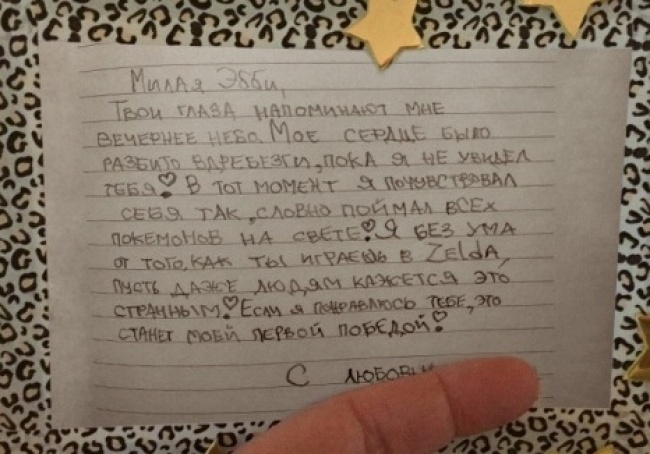 Милая Эбби,
Твои глаза напоминают мне
вечернее небо. Мое сердце было
разбито вдребезги, пока я не увидел
тебя! В тот момент я почувствовал
себя так, словно поймал всех
покемонов на свете! Я без ума
от того, как ты играешь в Zelda,
пусть даже людям кажется это
странным! Если я понравлюсь тебе, это
станет моей первой победой!
С любовью